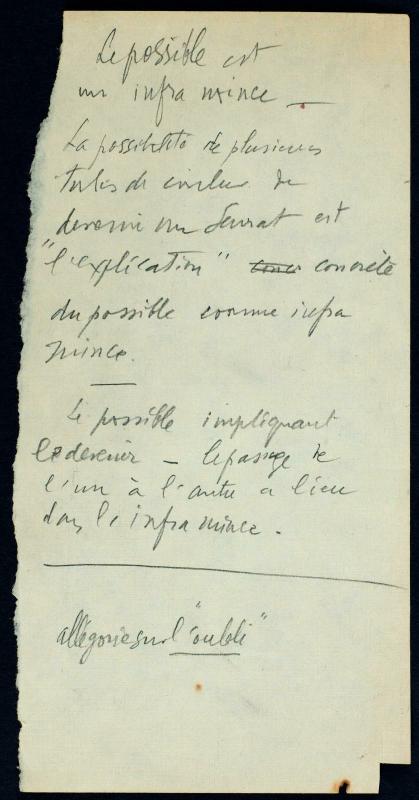 Le possible est
un infra mince _
La possibilité de plusieurs
tubes de couleur de
devenir un Seurat est
"l'explication" concrète
du possible comme infra
mince.
Le possible impliquant
le devenir _ le passage de
l'un à l'autre a lieu
dans l'infra mince.
allégorie sur l'"oubli"